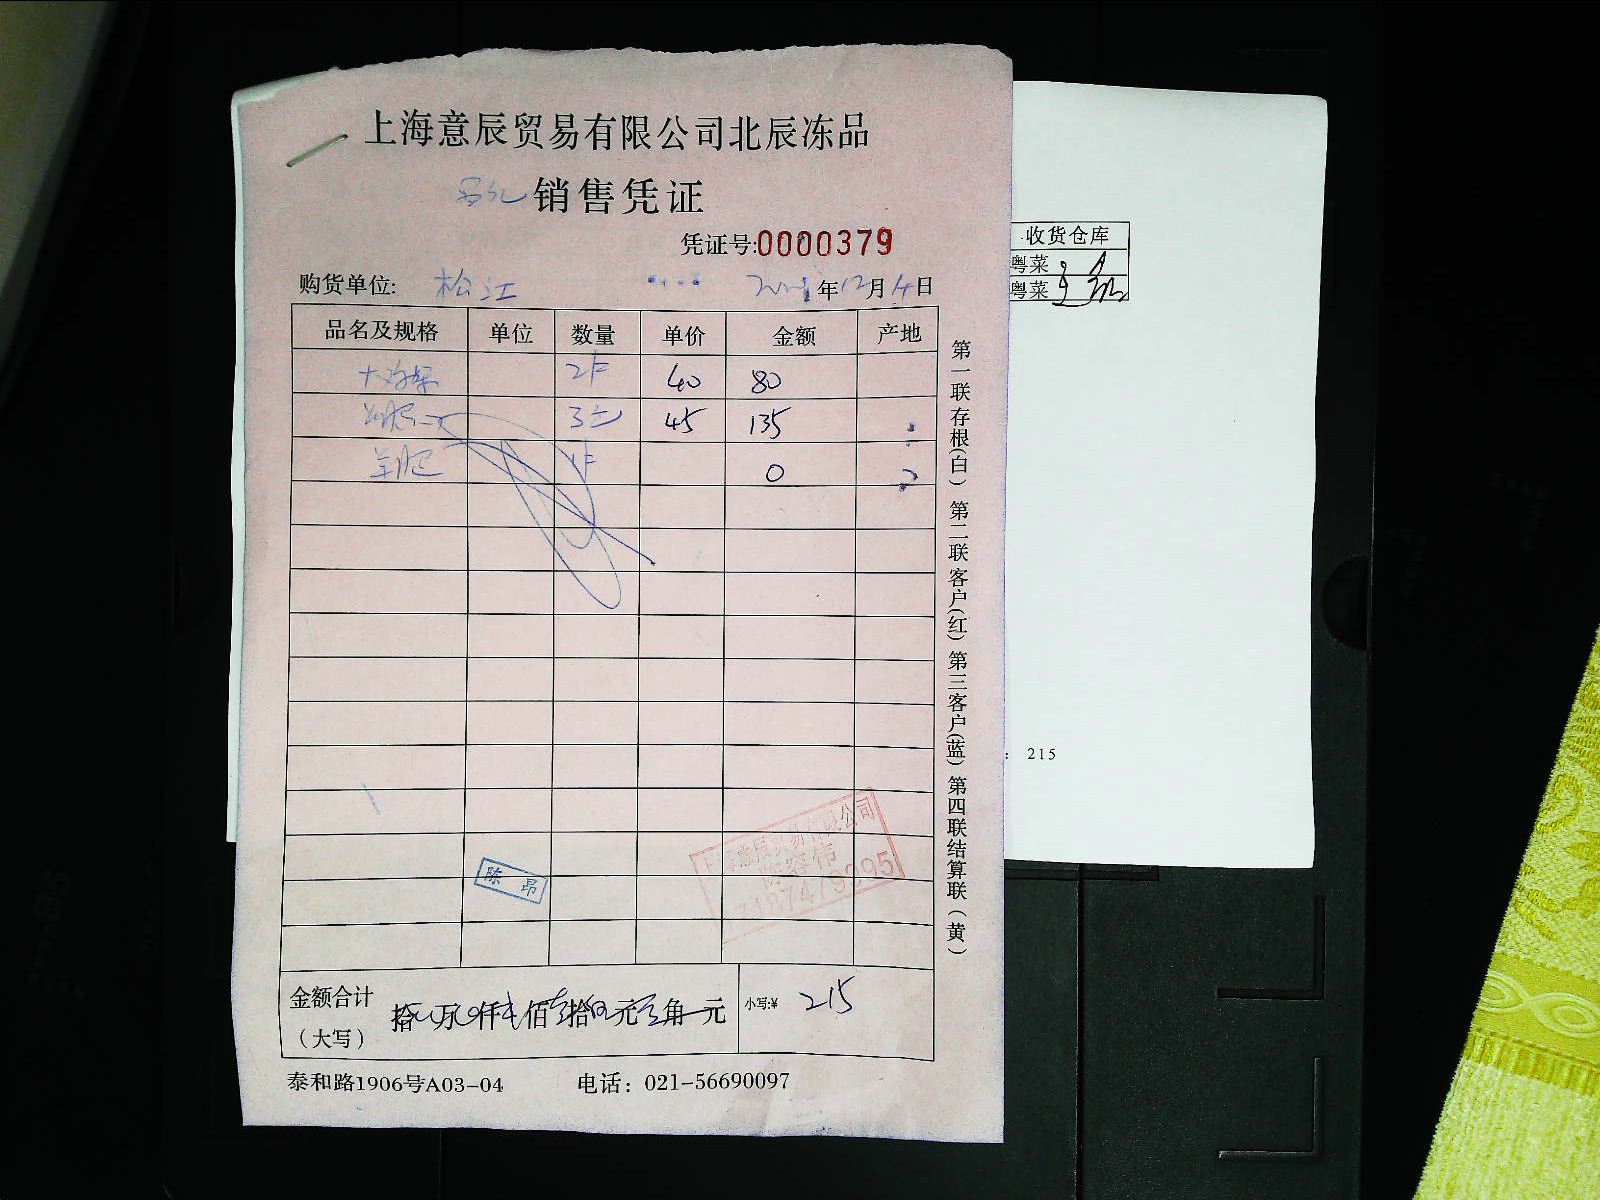 上海意辰贸易有限公司北辰冻品
销售凭证
凭证号:0000379
购货单位: 松江 年12月4日
品名及规格 单位 数量 单价 金额 产地
2斤 40 80
3 45 135
羊肥 1斤 0
金额合计
（大写）
拾 万 仟 佰 拾 元 角 元
小写:¥ 215
泰和路1906号A03-04 电话：021-56690097
第一联存根(白) 第二联客户(红) 第三客户(蓝) 第四联结算联(黄)
陈昂
上海意辰贸易有限公司
收货仓库
粤菜
粤菜
: 215